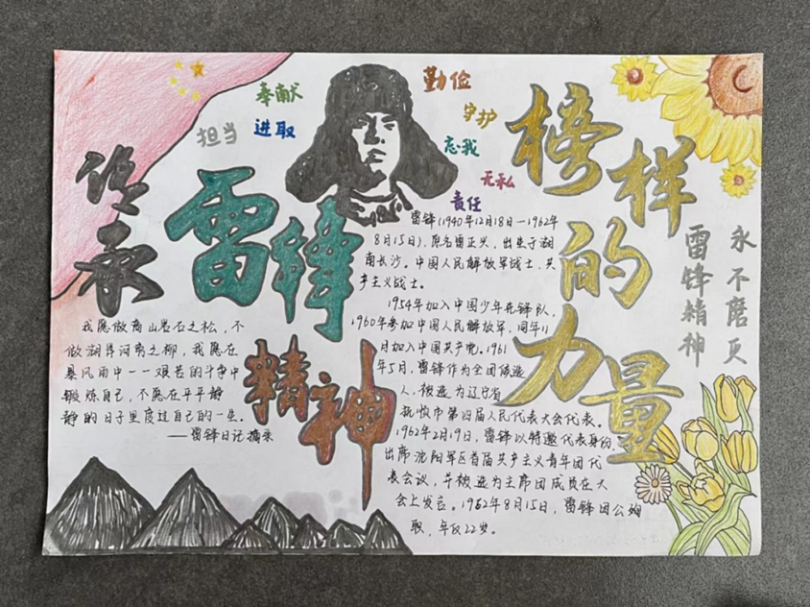 传承
雷锋
精神
榜样
的
力量
奉献
担当
进取
勤俭
守护
忘我
无私
责任
雷锋精神
永不磨灭
我愿做高山岩石之松，不
做湖岸河旁之柳，我愿在
暴风雨中——艰苦的斗争中
锻炼自己，不愿在平平静
静的日子里度过自己的一生。
——雷锋日记摘录
雷锋(1940年12月18日—1962年
8月15日)，原名雷正兴，出生于湖
南长沙，中国人民解放军战士，共
产主义战士。
1954年加入中国少年先锋队，
1960年参加中国人民解放军，同年11
月加入中国共产党。1961
年5月，雷锋作为全团候选
人，被选为辽宁省
抚顺市第四届人民代表大会代表。
1962年2月19日，雷锋以特邀代表身份，
出席沈阳军区首届共产主义青年团代
表会议，并被选为主席团成员在大
会上发言。1962年8月15日，雷锋因公殉
职，年仅22岁。